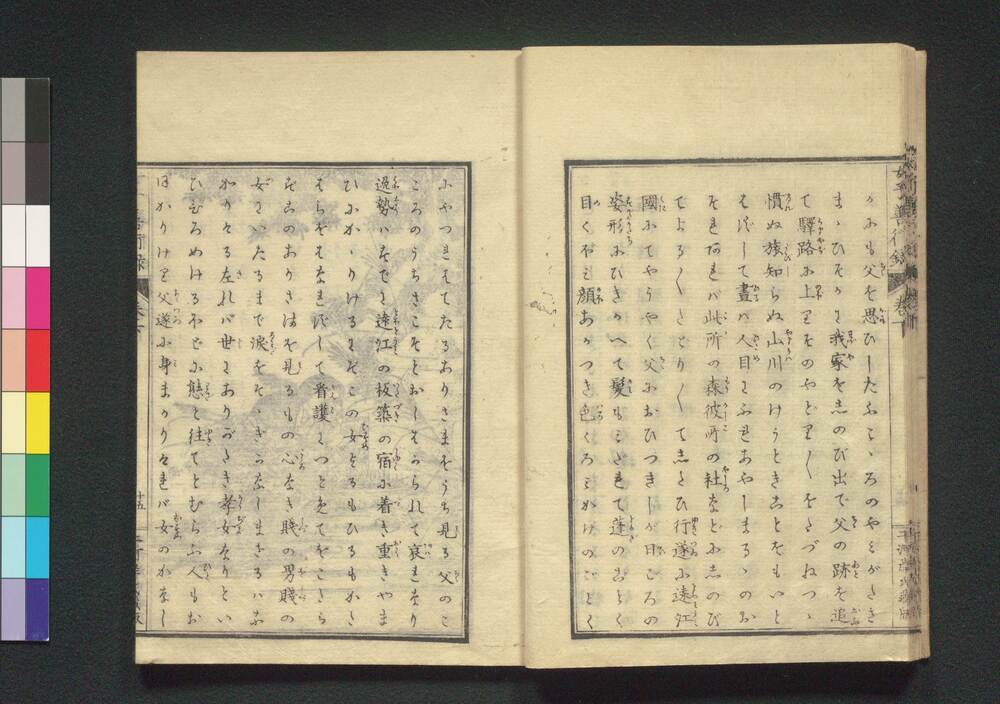 かにも父を思ひしたふこゝろのやみがたき
まゝひそかに我家をしのび出で父の跡を追
て驛路に上りそのやどり〳〵をたづねつゝ
慣ぬ旅知らぬ山川のけうときことをもいと
はずして晝は人目にふれあやしまるゝのお
それあれば此所の森彼所の社などにしのび
てよる〳〵たどり〳〵てしたひ行遂に遠江
國にてやうやく父におひつきしが日ごろの
姿形にひきかへて髪もみだれて蓬のごとく
目くぼみ顔あかつき色くろみかげのごとく
にやつれはてたるありさまをうち見る父のこ
ころのうちさこそとおしはかられて哀れなり
過勢はすでに遠江の板築の宿に着き重きやま
ひにかゝりけるにぞこの女よるもひるもかた
はらをはなれずして看護につとめてをこたら
ずそのありさまを見るもの心なき賤の男賤の
女にいたるまで涙をそゝぎかなしまざるはな
かりける左れば世にありがたき孝女なりとい
ひひろめけるほどに態と往てとむらふ人もお
ほかりけり父遂に身まかりければ女のかなし
女子善行録
卷下
十五